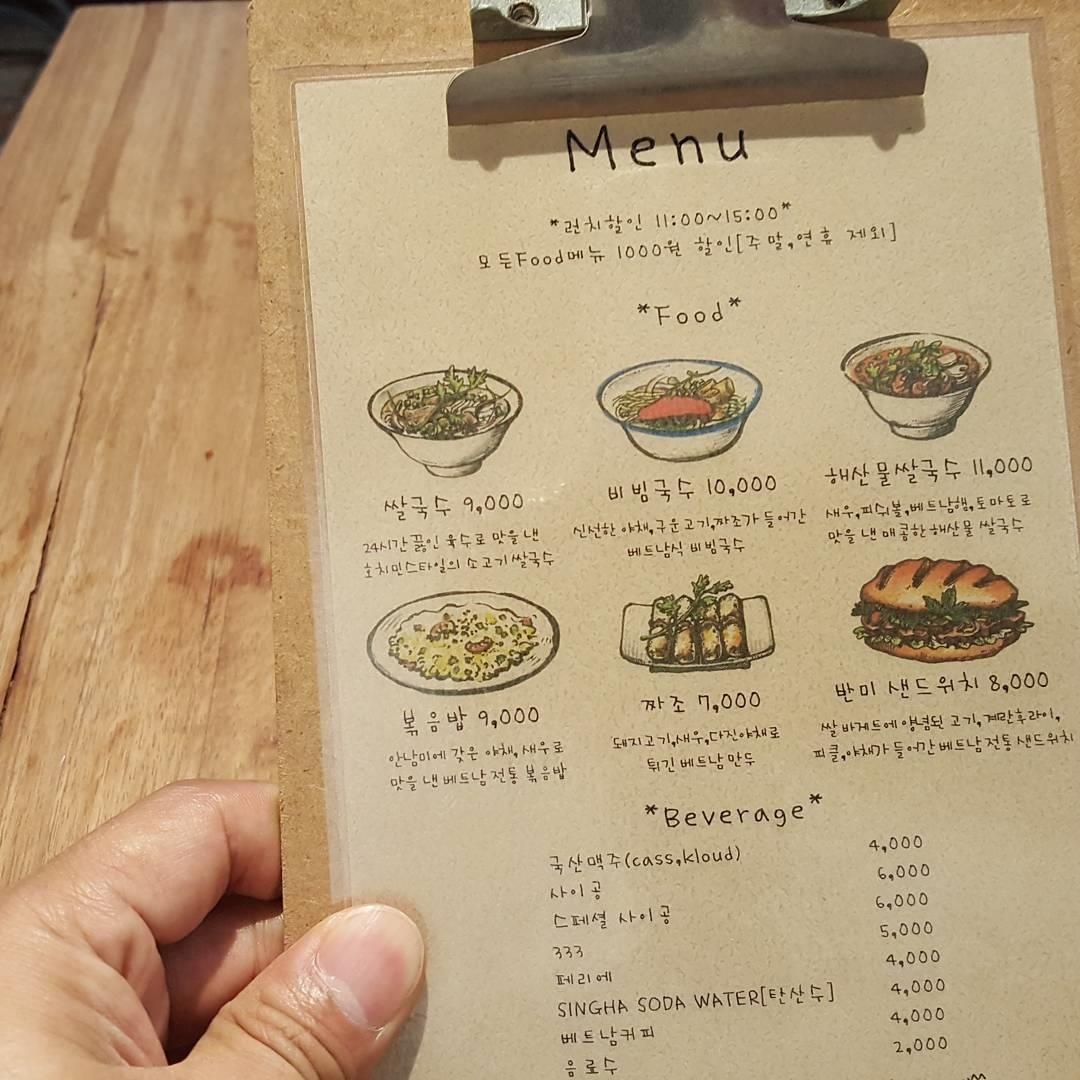 Menu
*런치할인 11:00~15:00*
모든Food메뉴 1000원 할인[주말,연휴 제외]
*Food*
쌀국수 9,000
24시간 끓인 육수로 맛을 낸
호치민스타일의 소고기 쌀국수
비빔국수 10,000
신선한 야채,구운고기,짜조가 들어간
베트남식 비빔국수
해산물쌀국수 11,000
새우,피쉬볼,베트남햄,토마토로
맛을 낸 매콤한 해산물 쌀국수
볶음밥 9,000
안남미에 갖은 야채, 새우로
맛을 낸 베트남 전통 볶음밥
짜조 7,000
돼지고기,새우,다진야채로
튀긴 베트남 만두
반미 샌드위치 8,000
쌀 바게트에 양념된 고기,계란후라이,
피클,야채가 들어간 베트남 전통 샌드위치
*Beverage*
국산맥주(cass,kloud) 4,000
사이공 6,000
스페셜 사이공 6,000
333 5,000
페리에 4,000
SINGHA SODA WATER[탄산수] 4,000
베트남커피 4,000
음료수 2,000